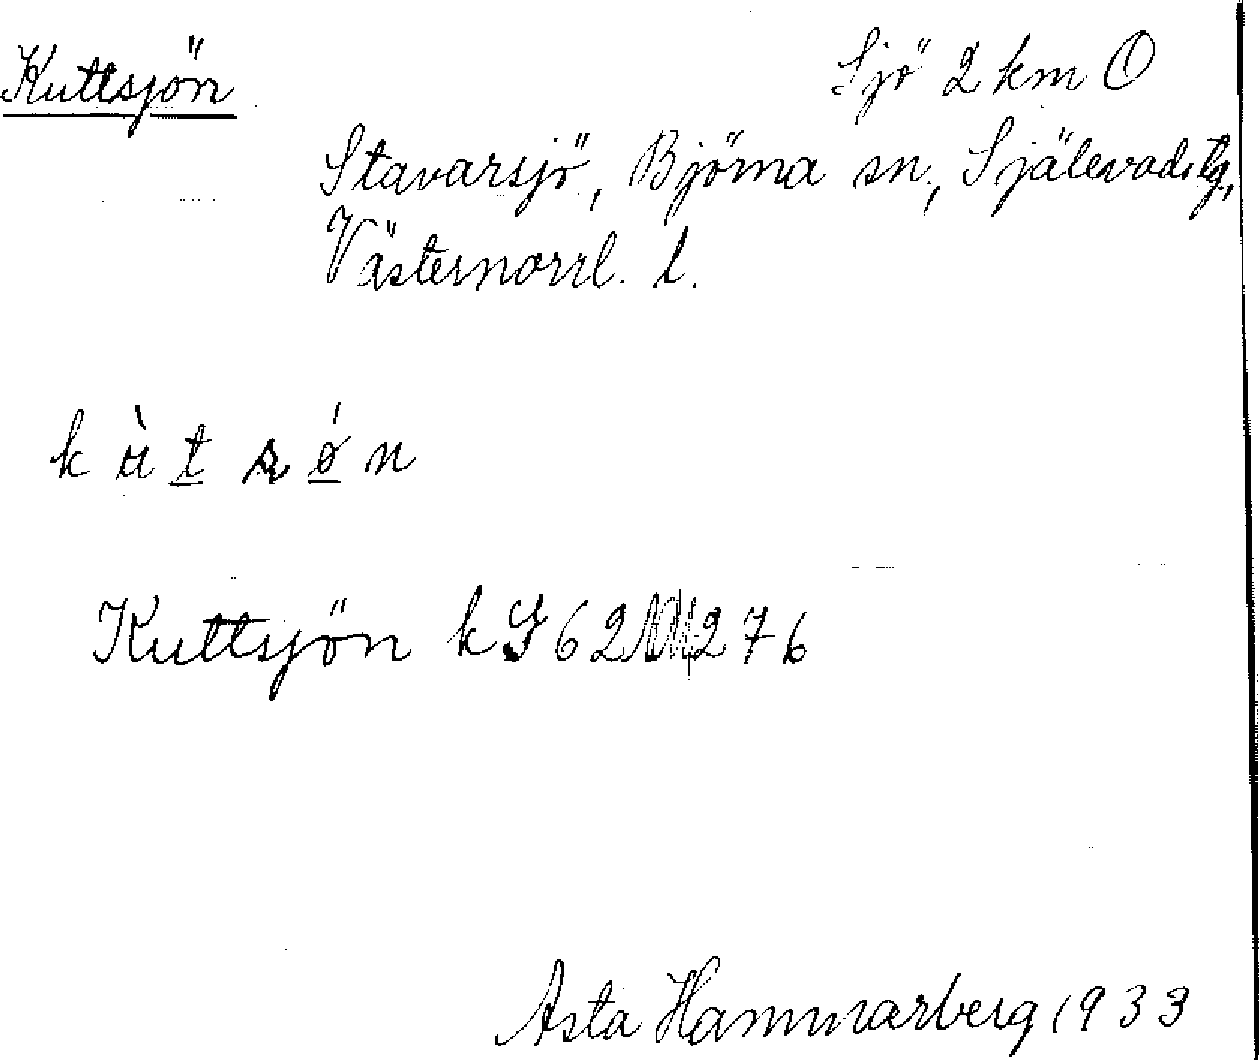 Kuttsjön Sjö 2 km O
Stavarsjö, Björna sn, Själevads tg,
Västernorrl. l.
k ù t s ǿ n
Kuttsjön k G 62 276
Asta Hammarberg 1933